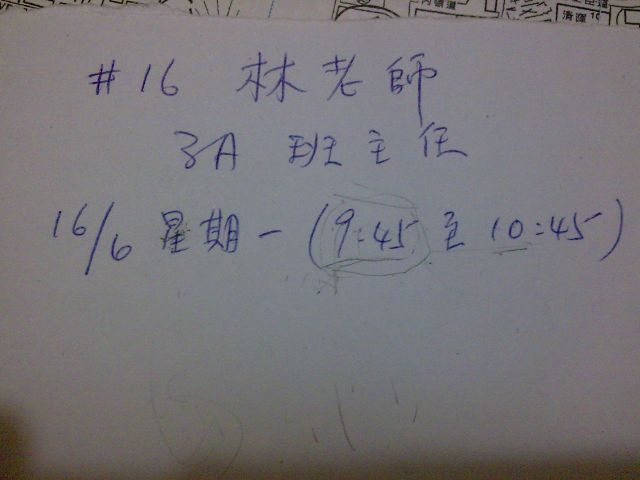 #16 林老師
3A 班主任
16/6 星期一 (9:45 至 10:45)